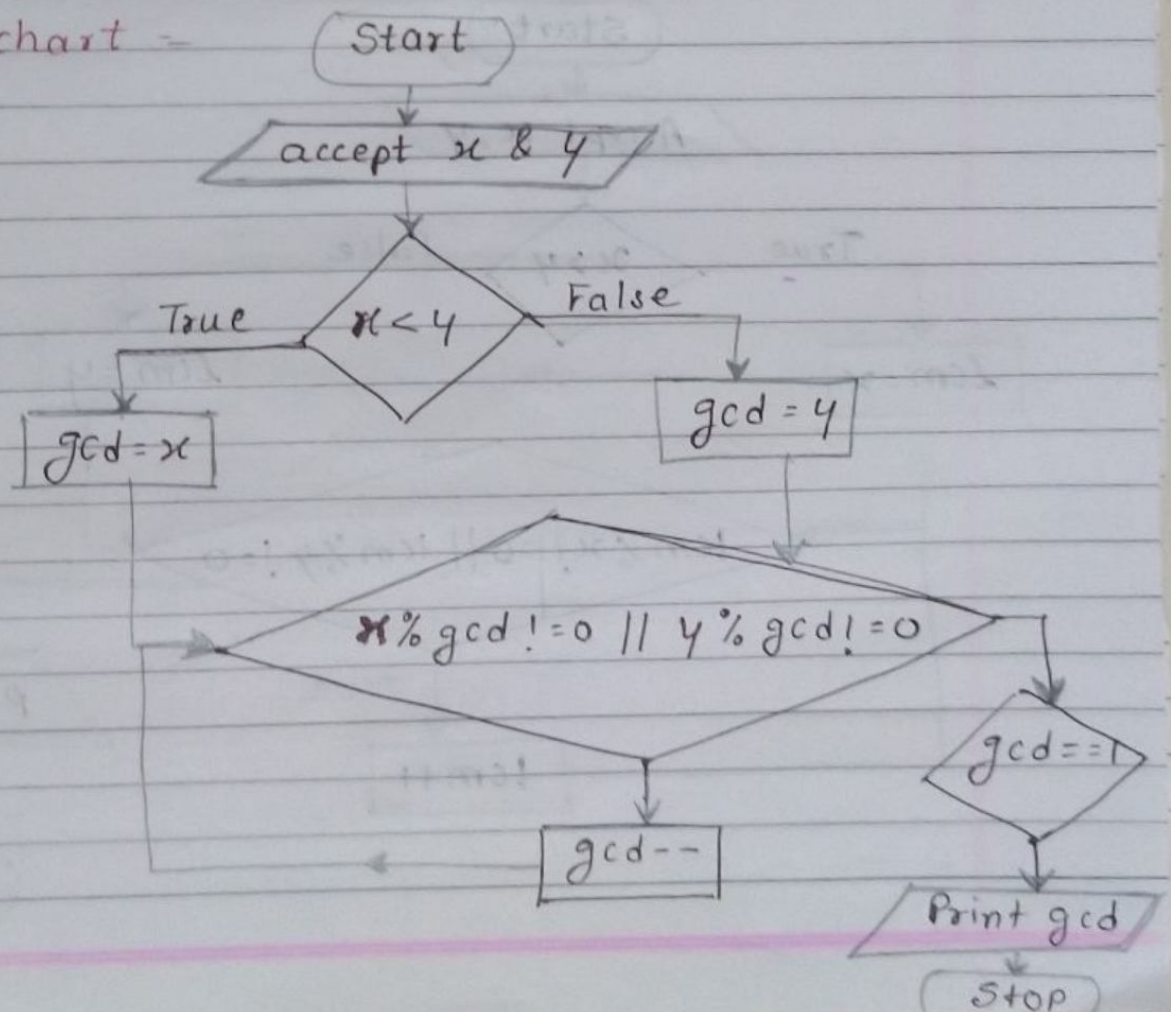 chart -
Start
accept x & y
x < y
True
False
gcd = x
gcd = y
x % gcd != 0 || y % gcd != 0
gcd == 1
gcd --
Print gcd
Stop